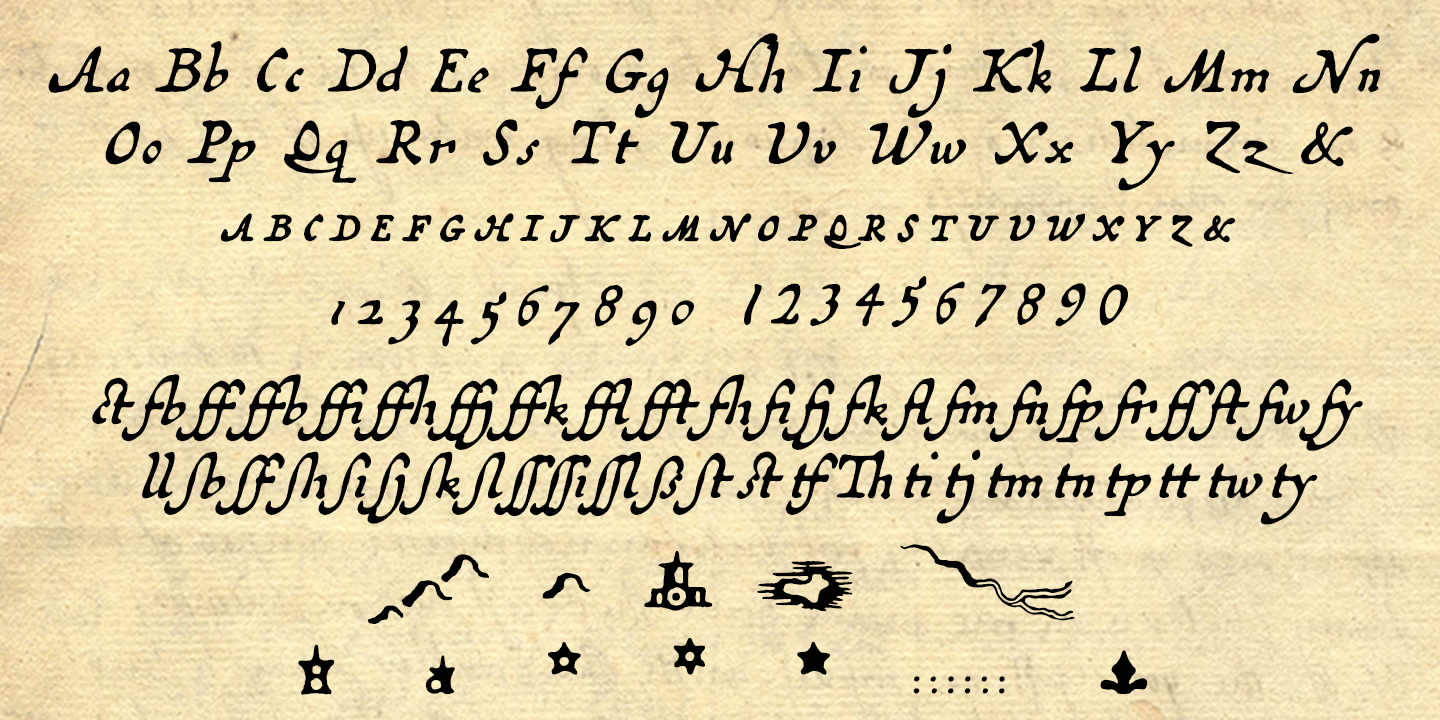 Aa Bb Cc Dd Ee Ff Gg Hh Ii Jj Kk Ll Mm Nn
Oo Pp Qq Rr Ss Tt Uu Vv Ww Xx Yy Zz &
A B C D E F G H I J K L M N O P Q R S T U V W X Y Z &
1 2 3 4 5 6 7 8 9 0 1 2 3 4 5 6 7 8 9 0
ct fb ff ffb ffi ffh ffj ffk ffl fft fh fi fj fk fl fm fn fp fr ft fw fy
ll ſb ſf ſh ſi ſj ſk ſl ſſ ſſi ſſl ß ſt st tf Th ti tj tm tn tp tt tw ty